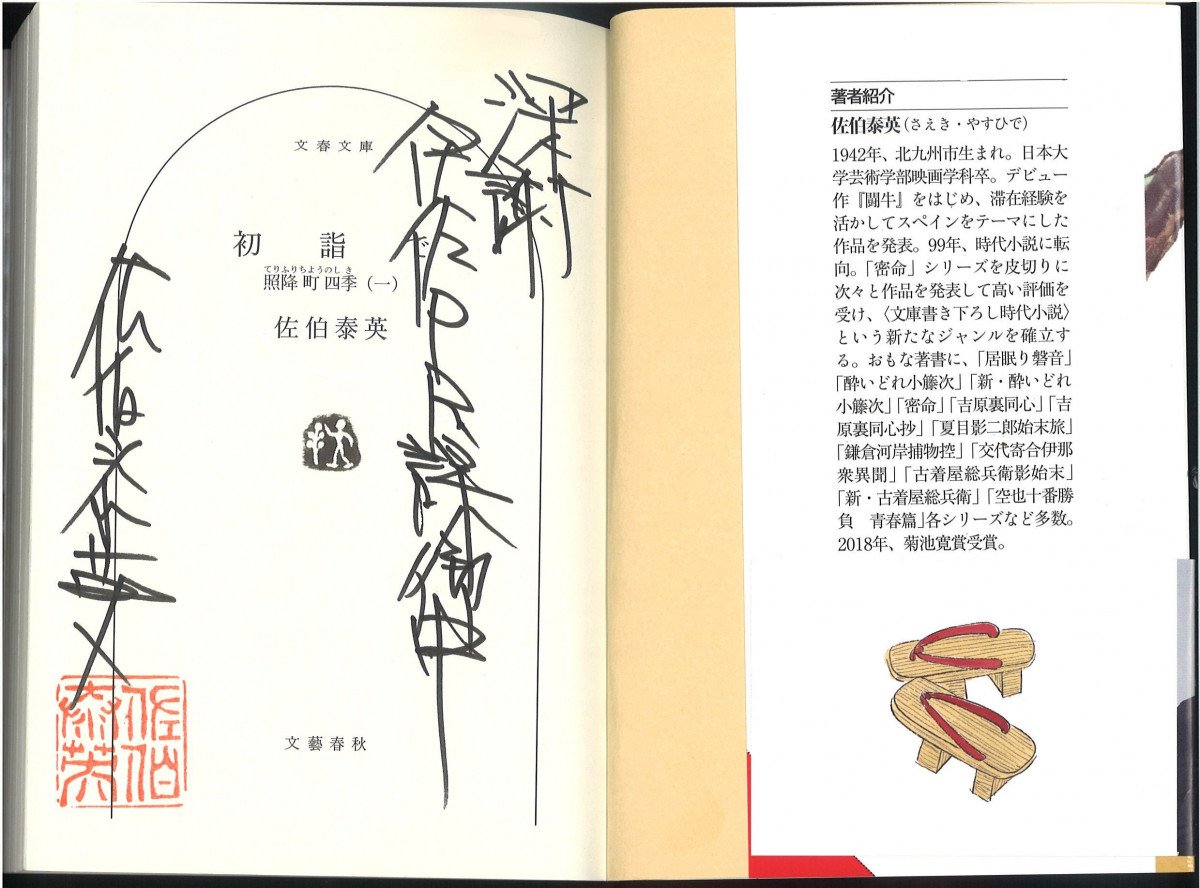 文春文庫
初詣
てりふりちょうのしき
照降町四季(一)
佐伯泰英
文藝春秋
佐伯泰英
佐伯
泰英
著者紹介
佐伯泰英(さえき・やすひで)
1942年、北九州市生まれ。日本大
学芸術学部映画学科卒。デビュー
作『闘牛』をはじめ、滞在経験を
活かしてスペインをテーマにした
作品を発表。99年、時代小説に転
向。「密命」シリーズを皮切りに
次々と作品を発表して高い評価を
受け、〈文庫書き下ろし時代小説〉
という新たなジャンルを確立す
る。おもな著書に、「居眠り磐音」
「酔いどれ小籐次」「新・酔いどれ
小籐次」「密命」「吉原裏同心」「吉
原裏同心抄」「夏目影二郎始末旅」
「鎌倉河岸捕物控」「交代寄合伊那
衆異聞」「古着屋総兵衛影始末」
「新・古着屋総兵衛」「空也十番勝
負　青春篇」各シリーズなど多数。
2018年、菊池寛賞受賞。